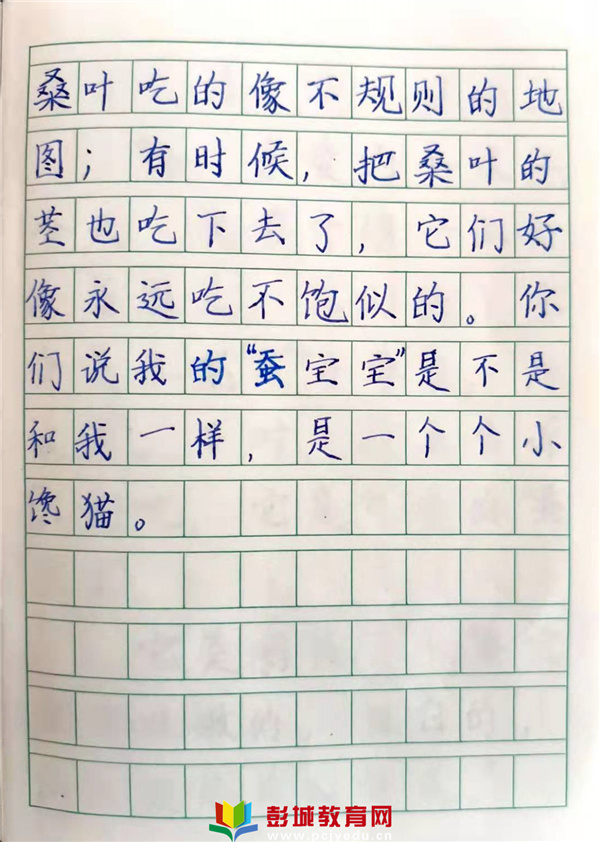 桑叶吃的像不规则的地
图；有时候，把桑叶的
茎也吃下去了，它们好
像永远吃不饱似的。你
们说我的“蚕宝宝”是不是
和我一样，是一个个小
馋猫。
彭城教育网
www.pcjyedu.cn